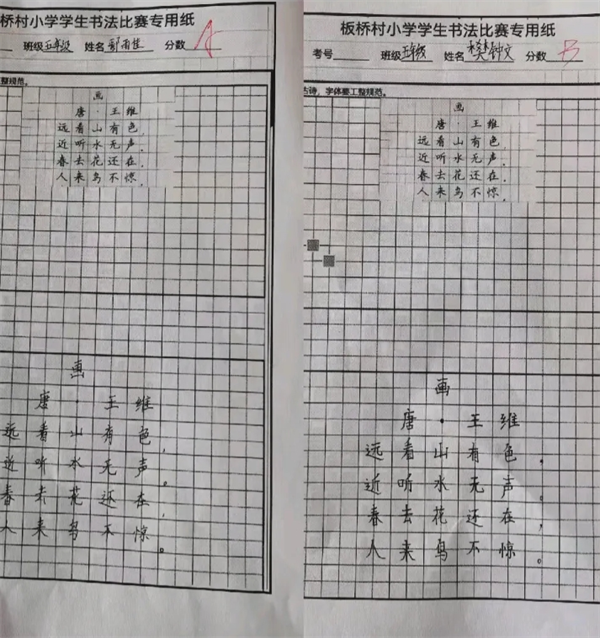 桥村小学学生书法比赛专用纸
班级 五年级 姓名 分数 A
整规范。
画
唐·王维
远看山有色，
近听水无声。
春去花还在，
人来鸟不惊。
画
唐·王维
远看山有色，
近听水无声。
春去花还在，
人来鸟不惊。
板桥村小学学生书法比赛专用纸
考号 班级 五年级 姓名 樊钟文 分数 B
古诗，字体要工整规范。
画
唐·王维
远看山有色，
近听水无声。
春去花还在，
人来鸟不惊。
画
唐·王维
远看山有色，
近听水无声。
春去花还在，
人来鸟不惊。